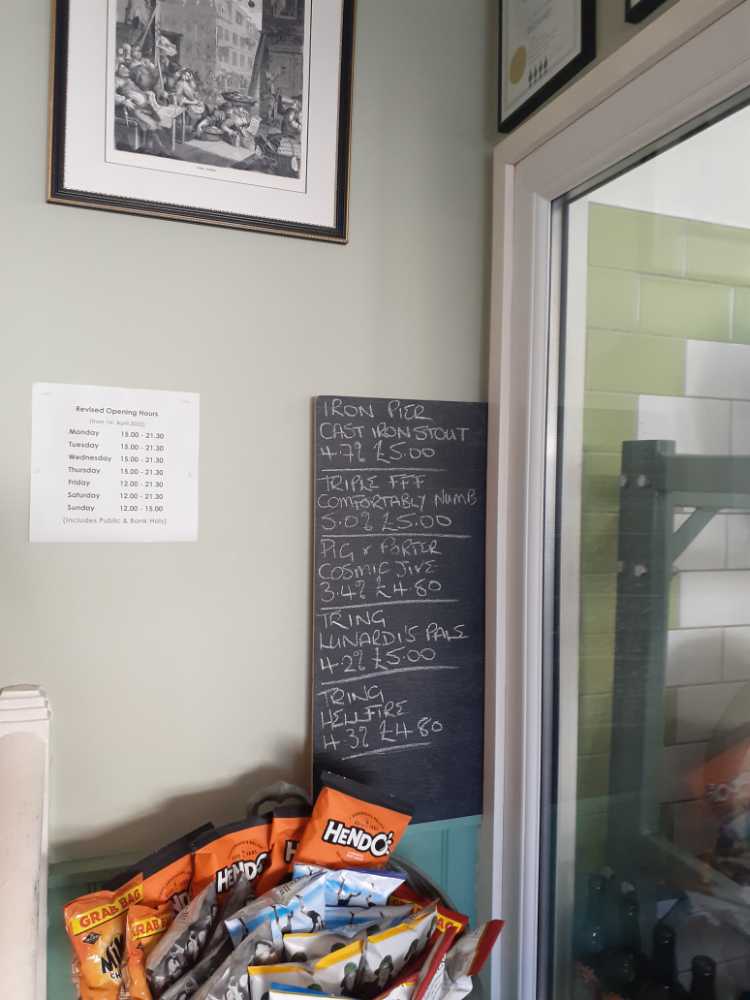 Revised Opening Hours
(from 1st April 2022)
Monday 15.00 - 21.30
Tuesday 15.00 - 21.30
Wednesday 15.00 - 21.30
Thursday 15.00 - 21.30
Friday 12.00 - 21.30
Saturday 12.00 - 21.30
Sunday 12.00 - 15.00
(Includes Public & Bank Hols)
IRON PIER
CAST IRON STOUT
4.7% £5.00
TRIPLE FFF
COMFORTABLY NUMB
5.0% £5.00
PIG & PORTER
COSMIC JIVE
3.4% £4.80
TRING
LUNARDI'S PALE
4.2% £5.00
TRING
HELLFIRE
4.3% £4.80
HENDO'S
HENDO
H
GRAB BAG
GRAB BAG